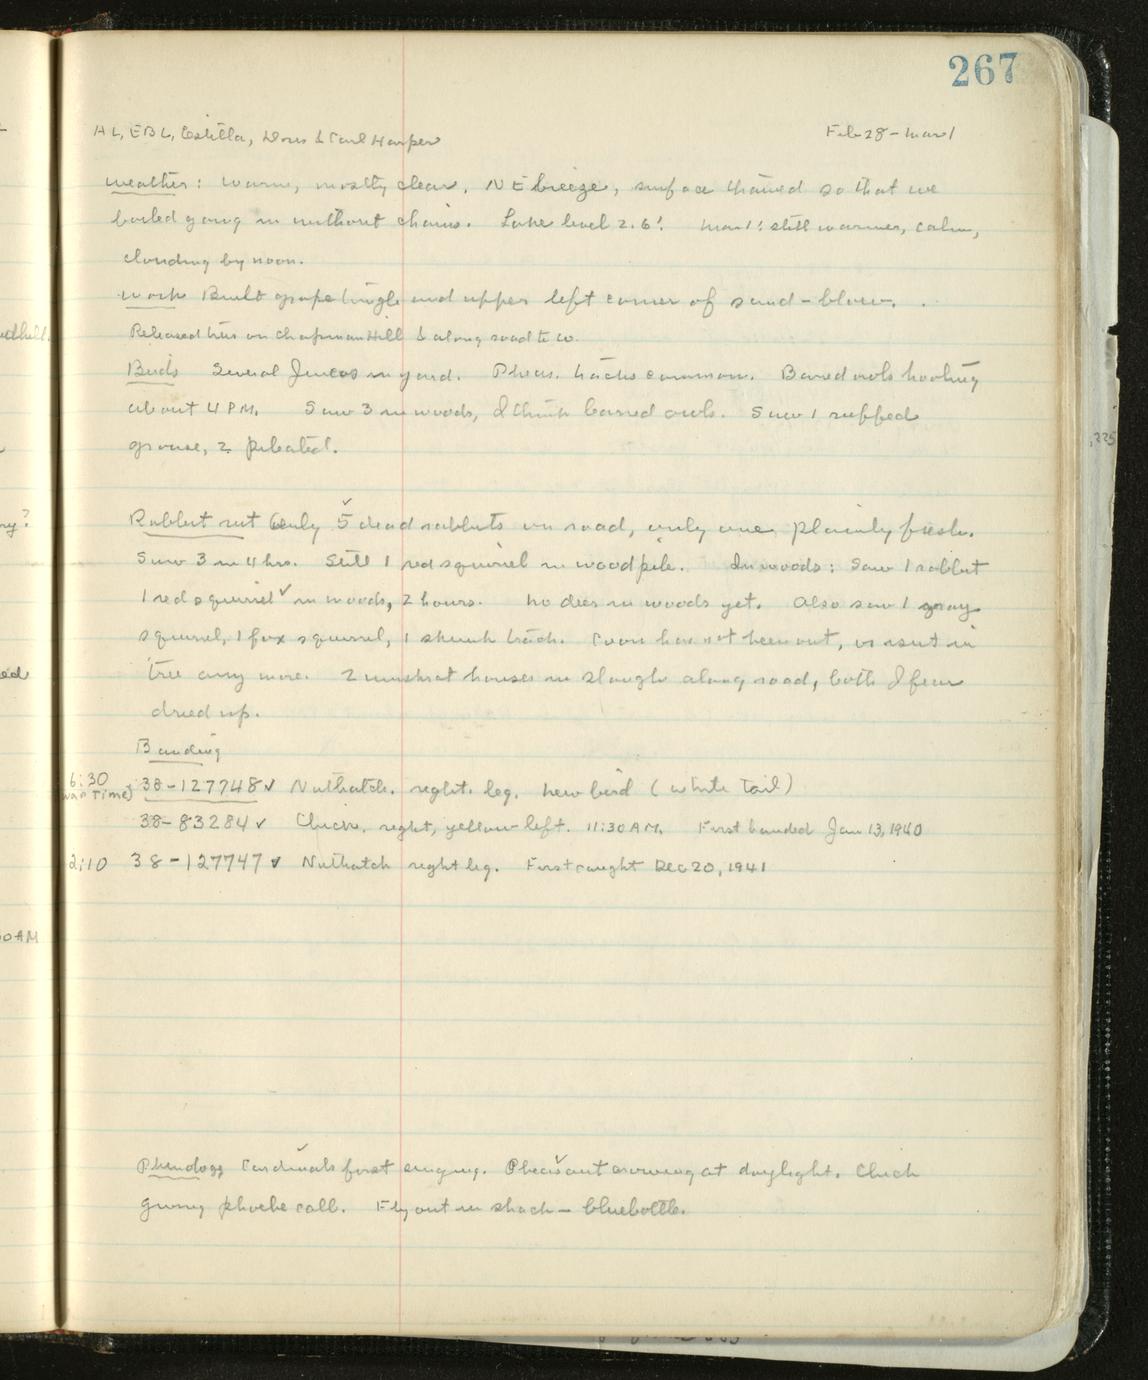 267
AL, EBL, Estella, Doris & Carl Harper Feb 28 - Mar 1
weather: Warm, mostly clear, NE breeze, surface thawed so that we
boiled going in without chains. Lake level 2.6'. Mar 1: still warmer, calm,
clouding by noon.
work Built grape tangle end upper left corner of sand-blow.
Released ties on Chapman Hill & along road to W.
Birds Several Juncos in yard. Pheas. tracks common. Barred owls hooting
about 4 PM. Saw 3 in woods, I think barred owls. Saw 1 ruffed
grouse, 2 pileated.
Rabbit rut Only 5 dead rabbits on road, only one plainly fresh.
Saw 3 in 4 hrs. Still 1 red squirrel in woodpile. In woods: Saw 1 rabbit
1 red squirrel in woods, 2 hours. No deer in woods yet. Also saw 1 gray
squirrel, 1 fox squirrel, 1 skunk track. Coon has not been out, or isn't in
tree any more. 2 muskrat houses in slough along road, both I fear
dried up.
Banding
6:30 (war Time) 38-127748 ✓ Nuthatch. right leg. New bird (white tail)
38-83284 ✓ Chick. right, yellow left. 11:30 AM. First banded Jan 13, 1940
2:10 38-127747 ✓ Nuthatch right leg. First caught Dec 20, 1941
Phenology Cardinals first singing. Pheasant crowing at daylight. Chick
giving phoebe call. Fly out in shack - bluebottle.